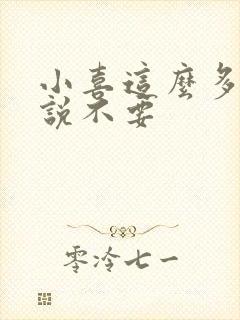 小喜這麼多
說不要
零冷七一